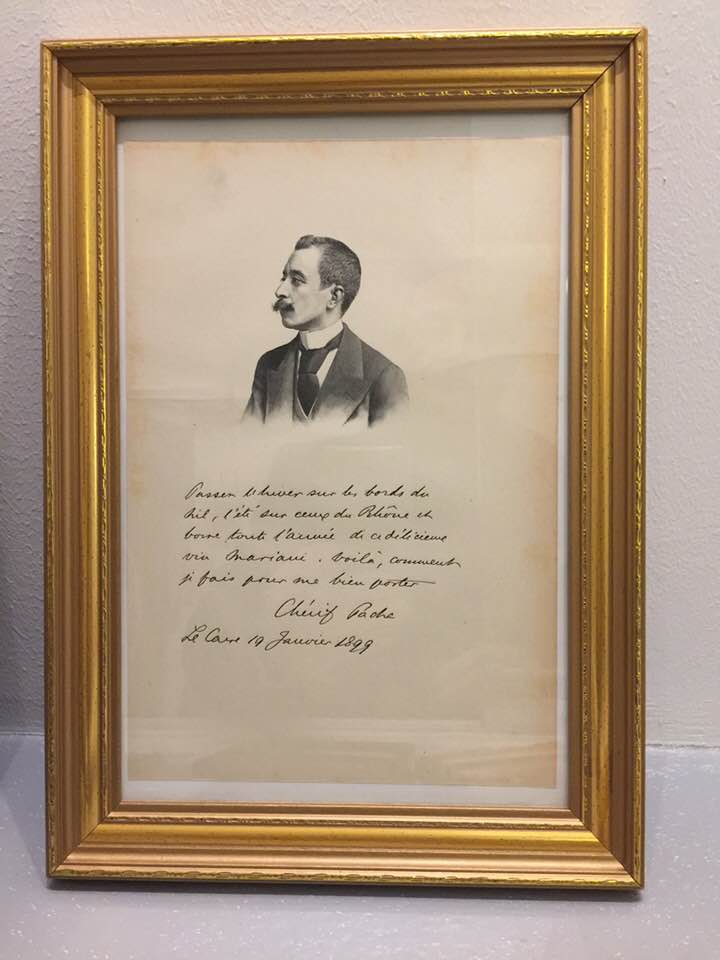 Passer l'hiver sur les bords du
Nil, l'été sur ceux du Rhône et
boire toute l'année de ce délicieux
vin Mariani. Voilà, comment
je fais pour me bien porter
Chérif Pacha
Le Caire 19 Janvier 1899